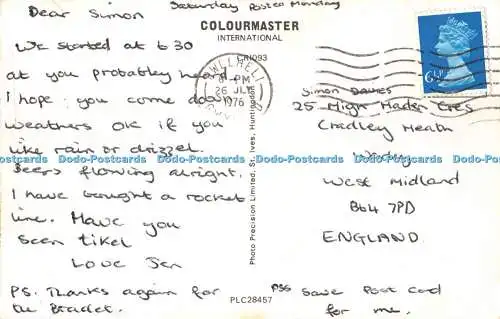 Saturday Posted Monday
Dear Simon
We started at 6 30
at you probabley heard.
I hope you come down
weathers OK if you
like rain or drizzel.
Beers flowing alright.
I have bought a rocket
line. Have you
seen Tikel
Love Jen
PS. Thanks again for
the Bracket.
COLOURMASTER
INTERNATIONAL
PWLLHELI
6-PM
26 JLY
1976
6½P
Simon Davies
25 High Haden Cres
Cradley Heath
Warley
West Midland
B64 7PD
ENGLAND
PSS Save Post card
for me.
Photo Precision Limited, St. Ives, Huntingdon
PLC28457
Dodo-Postcards Dodo-Postcards Dodo-Postcards Dodo-Postcards Dodo-Postcards